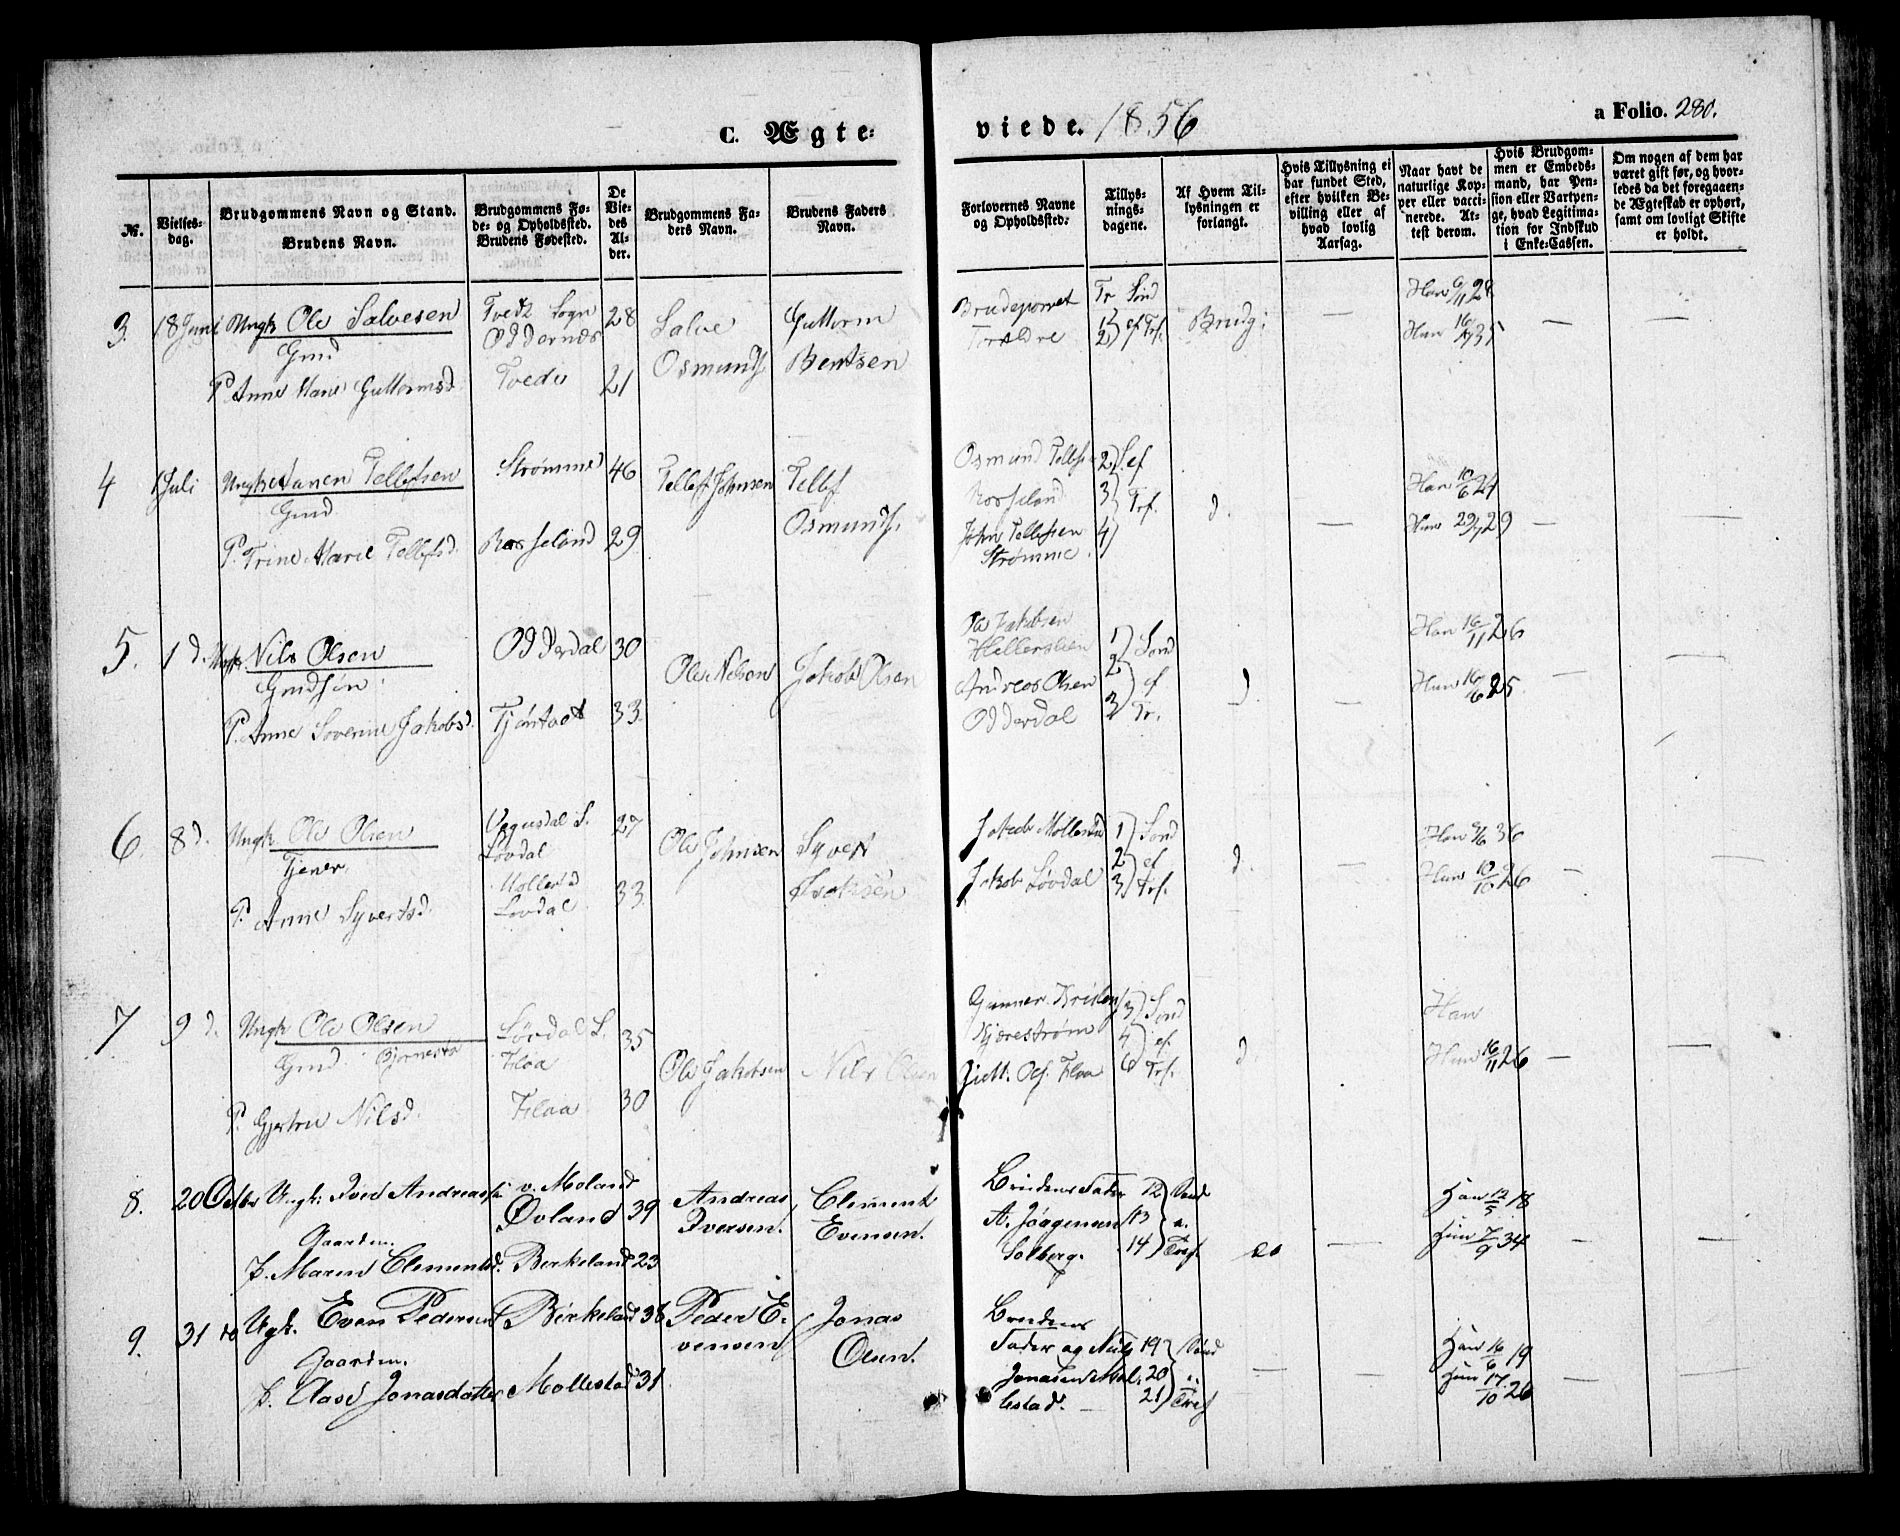 C. Ægte-
viede. 1856
a Folio. 280.
№.
Vielses-
dag.
Brudgommens Navn og Stand.
Brudens Navn.
Brudgommens Fø-
de- og Opholdssted.
Brudens Fødested.
De
Vie-
des
Al-
der.
Brudgommens Fa-
ders Navn.
Brudens Faders
Navn.
Forlovernes Navne
og Opholdssted.
Tillys-
nings-
dagene.
Af Hvem Til-
lysningen er
forlangt.
Hvis Tillysning ei
har fundet Sted,
efter hvilken Be-
villing eller af
hvad lovlig
Aarsag.
Naar havt de
naturlige Kop-
per eller vacci-
nerede. At-
test derom.
Hvis Brudgom-
men er Embeds-
mand, har Pen-
sion eller Vartpen-
ge, hvad Legitima-
tion for Indskud
i Enke-Cassen.
Om nogen af dem har
været gift før, og hvor-
ledes da det foregaaen-
de Ægteskab er ophørt,
samt om lovligt Skifte
er holdt.
3. 18 Juni Ungk Ole Salvesen
Gmd
P. Anne Marie Guttormsd.
Tvedt Sogn
Odderness
Tvede
28
21
Salve
Osmunds.
Guttorm
Bentsen
Brudeparret
Forældre
Tr Sönd
1 2 ef Trf.
Brudg:
Han 6/11 28
Hun 16/7 35
4 1 Juli Ungk Hanen Tellefsen
Gmd
P. Trine Marie Tellefsd.
Strømme
Rosseland
46
29
Tellef Johnsen
Tellef
Osmunds.
Osmund Tellefsen
Rosseland
John Tellefsen
Strømme.
2 S. ef
3 Trf.
4
d.
Han 10/6 24
Hun 29/7 29
5. 1 d. Ungk. Nils Olsen
Gmdsøn
P. Anne Severine Jakobsd.
Odderdal
Tjøntvet
30
33.
Ole Nilsen
Jakob Olsen
Ole Jakobsen
Hellerslien
Andreas Olsen
Odderdal
1 Sond
2 ef
3 Tr.
d.
Han 16/11 26
Hun 16/6 25.
6. 8 d. Ungk Ole Olsen
Tjener.
P. Anne Syvertsd.
Vegusdal S.
Løvdal
Mollestad
Løvdal
27
33.
Ole Johnsen
Syvert
Isaksen
Jakob Mollestad
Jakob Løvdal
1 Sond
2 ef
3 Trf.
d.
Han 9/6 36
Hun 10/10 26
7 9 d. Ungk Ole Olsen
Gmd. Bjørnestø
P. Gjertru Nilsd.
Løvdal S.
Flaa
Flaa
35
30
Ole Jakobsen
Nils Olsen
Gunner Kristens.
Kjærestrøm
Gutt. Ols. Flaa
3 Sond
4 ef.
6 Trf.
d.
Han
Hun 16/11 26
8. 20 Octbr Ungk: Iver Andreass.
Gaardm.
P. Maren Clementsd.
v. Moland
Øvland
Birkeland
39
23
Andreas
Iversen.
Clement
Evensen.
Brudens Fader
A. Jörgensen
Solberg.
12 Sønd
13 e.
14 Tref.
do
Han 12/5 18
Hun 7/9 34
9. 31 do Ugk. Even Pedersen
Gaardm.
P. Aase Jonasdatter
Birkeland
Mollestad
38
31
Peder E-
vensen
Jonas
Olsen.
Brudens
Fader og Niels
Jonassen Mol-
lestad.
19 Sønd
20 e.
21 Tref
Han 16/6 19
Hun 17/10 26